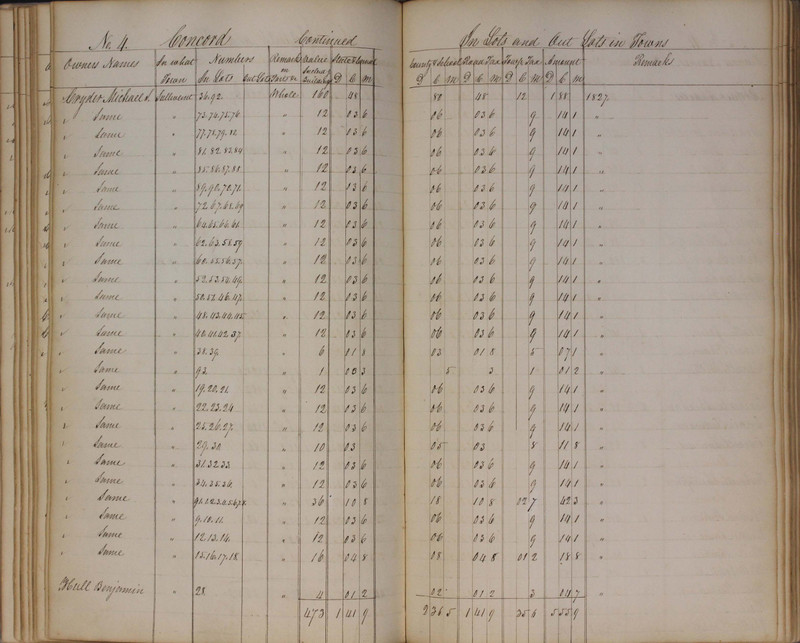 No. 4. Concord Continued In Lots and Out Lots in Towns
Owners Names In what Town Numbers In Lots Out Lots Remarks on Value State & County & School Road Tax Town Tax Amount Remarks
D C M D C M D C M D C M D C M
Michael S. 36.92 Whole 160 48 80 48 12 1 88 1827
Same " 73.74.75.76 " 12 03 6 06 03 6 9 14 1 "
Same " 77.78.79.80 " 12 03 6 06 03 6 9 14 1 "
Same " 81.82.83.84 " 12 03 6 06 03 6 9 14 1 "
Same " 85.86.87.88 " 12 03 6 06 03 6 9 14 1 "
Same " 89.90.70.71 " 12 03 6 06 03 6 9 14 1 "
Same " 72.67.68.69 " 12 03 6 06 03 6 9 14 1 "
Same " 64.65.66.61 " 12 03 6 06 03 6 9 14 1 "
Same " 62.63.58.59 " 12 03 6 06 03 6 9 14 1 "
Same " 60.55.56.57 " 12 03 6 06 03 6 9 14 1 "
Same " 52.53.54.49 " 12 03 6 06 03 6 9 14 1 "
Same " 50.51.46.47 " 12 03 6 06 03 6 9 14 1 "
Same " 48.43.44.45 " 12 03 6 06 03 6 9 14 1 "
Same " 40.41.42.37 " 12 03 6 06 03 6 9 14 1 "
Same " 38.39 " 6 01 8 03 01 8 5 07 1 "
Same " 93 " 1 00 3 5 3 1 01 2 "
Same " 19.20.21 " 12 03 6 06 03 6 9 14 1 "
Same " 22.23.24 " 12 03 6 06 03 6 9 14 1 "
Same " 25.26.27 " 12 03 6 06 03 6 9 14 1 "
Same " 29.30 " 10 03 05 03 8 11 8 "
Same " 31.32.33 " 12 03 6 06 03 6 9 14 1 "
Same " 34.35.36 " 12 03 6 06 03 6 9 14 1 "
Same " 36 10 8 18 10 8 02 7 42 3 "
Same " 9.10.11 " 12 03 6 06 03 6 9 14 1 "
Same " 12.13.14 " 12 03 6 06 03 6 9 14 1 "
Same " 15.16.17.18 " 16 04 8 08 04 8 01 2 18 8 "
Hull Benjamin " 28 " 4 01 2 02 01 2 3 04 7 "
473 1 41 9 2 36 5 1 41 9 35 6 5 55 9